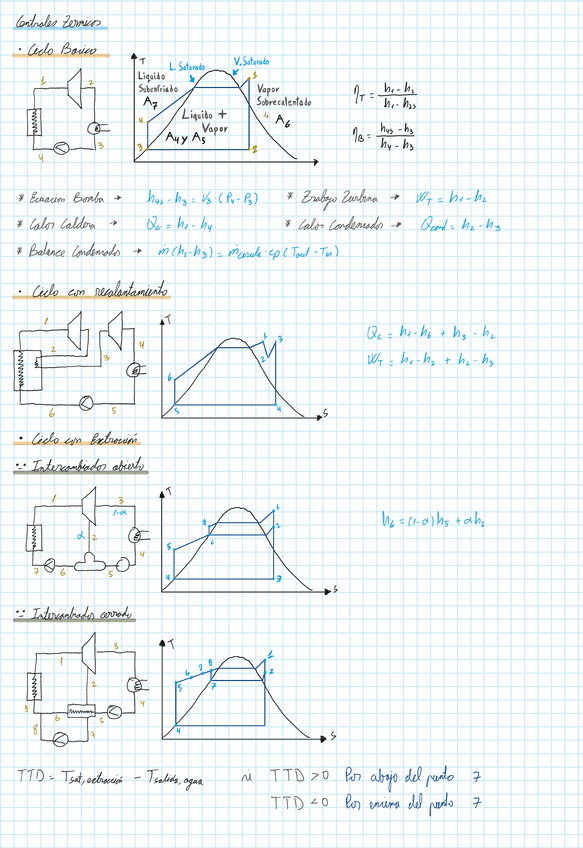 Centrales Termicas
• Ciclo Basico
T
L. Saturado
V. Saturado
Liquido
Subenfriado
A7
Liquido +
Vapor
A4 y A5
Vapor
Sobrecalentado
A6
1
2
3
4
1
2
3
4
ηT = h1 - h2 / h1 - h2s
ηB = h4s - h3 / h4 - h3
* Ecuacion Bomba → h4s - h3 = V3 · (P4 - P3)
* Trabajo Turbina → WT = h1 - h2
* Calor Caldera → Qc = h1 - h4
* Calor Condensador → Qcond = h2 - h3
* Balance Condensador → ṁ(h2 - h3) = ṁcircula · cp (Tout - Tin)
• Ciclo con recalentamiento
1
2
3
4
5
6
T
1
2
3
4
5
6
S
Qc = h1 - h6 + h3 - h2
• Ciclo con Extracción
Intercambiador abierto
1
2
3
1-α
α
4
5
6
7
T
1
2
3
4
5
6
7
S
h6 = (1-α) h5 + αh2
Intercambiador cerrado
1
2
3
4
5
6
7
8
9
T
1
2
4
5
6
9
8
7
S
TTD = Tsat, extracción - Tsalida, agua
TTD > 0 Por abajo del punto 7
TTD < 0 Por encima del punto 7